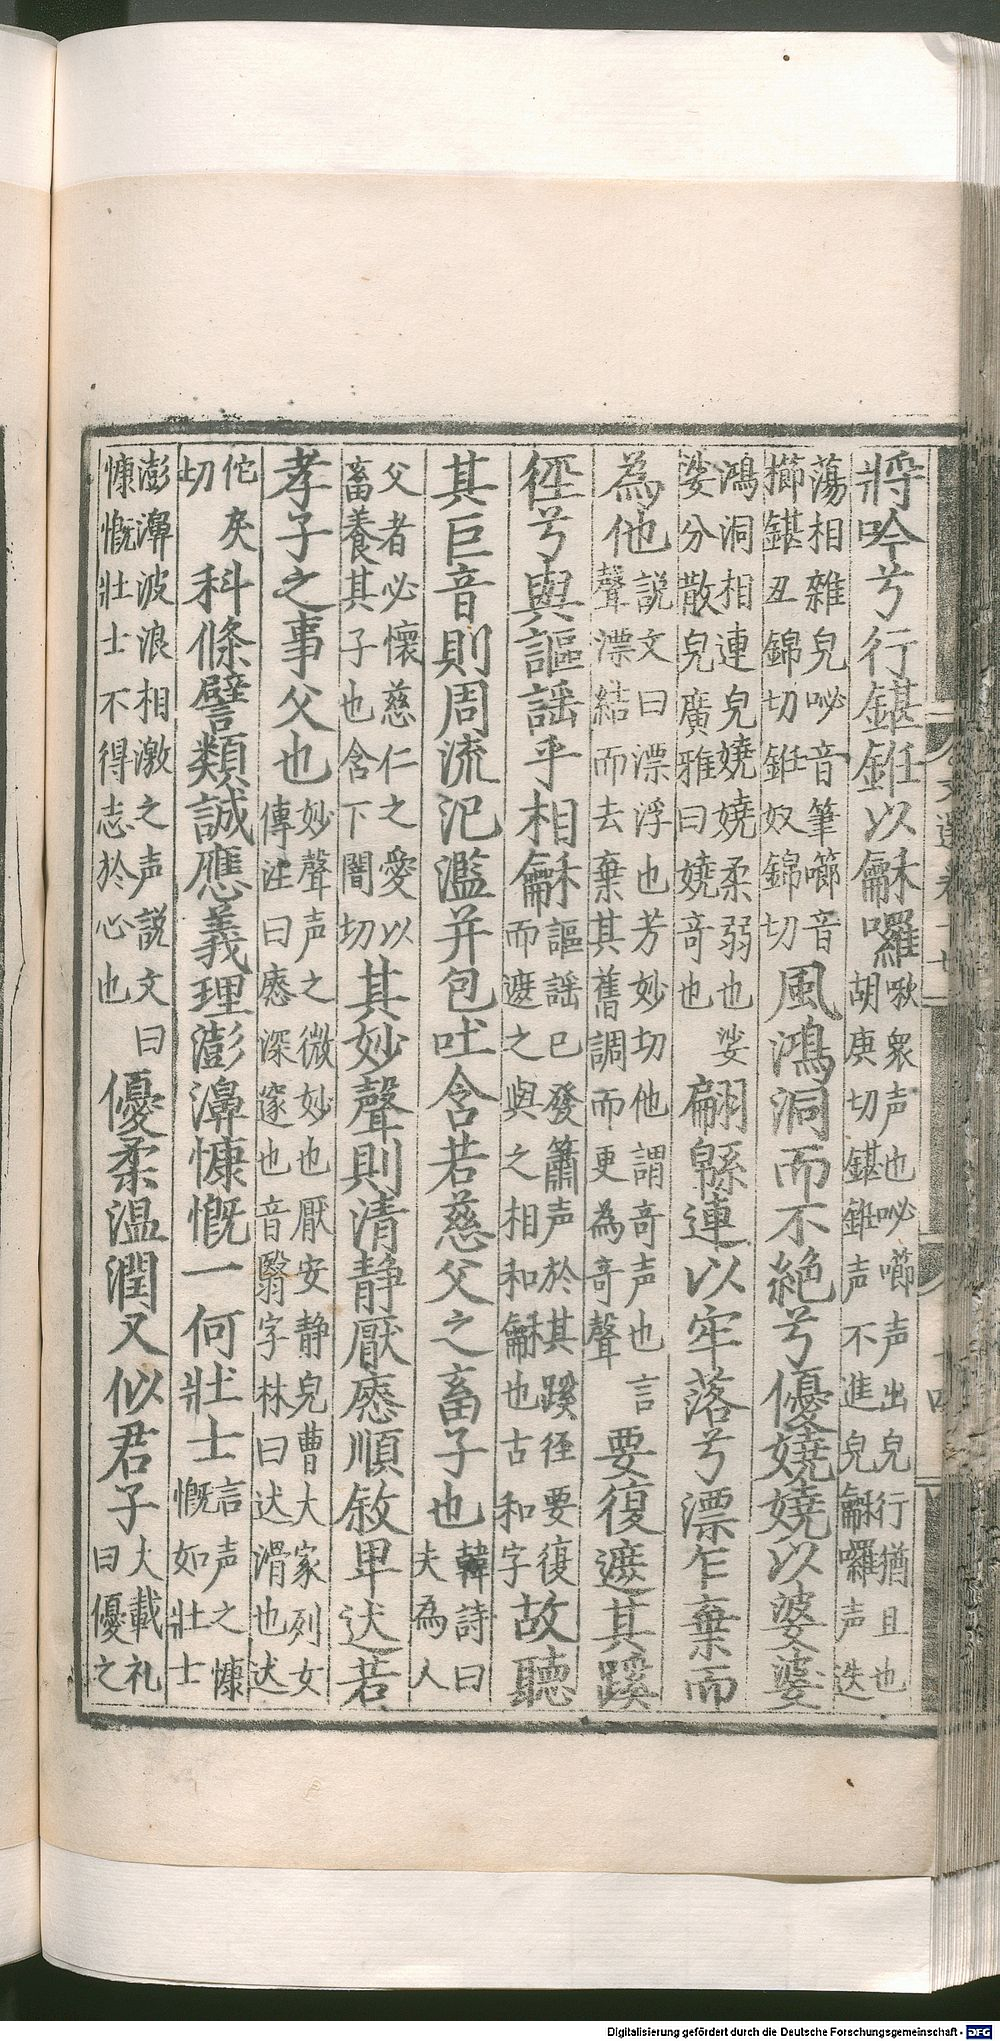 將吟兮行鍖銋以龢囉啾衆声也咇㘉声出皃行猶且也
胡庚切鍖銋声不進皃龢囉声迭
蕩相雜皃咇音筆㘉音
櫛鍖丑錦切銋奴錦切風鴻洞而不絶兮優嬈嬈以婆娑
鴻洞相連皃嬈嬈柔弱也娑
娑分散皃廣雅曰嬈奇也翩緜連以牢落兮漂乍棄而
為他說文曰漂浮也芳妙切他謂奇声也言
聲漂結而去棄其舊調而更為奇聲要復遮其蹊
徑兮與謳謡乎相龢謳謡已發簫声於其蹊径要復
而遮之與之相和龢也古和字故聽
其巨音則周流汜濫并包吐含若慈父之畜子也韓詩曰
夫為人
父者必懷慈仁之愛以
畜養其子也含下闇切其妙聲則清静厭㥷順敘卑迖若
孝子之事父也妙聲声之微妙也厭安静皃曹大家列女
傳注曰㥷深邃也音翳字林曰迖滑也迖
佗戾
切科條譬類誠應義理澎濞慷慨一何壯士言声之慷
慨如壯士
澎濞波浪相激之声說文曰
慷慨壯士不得志於心也優柔温潤又似君子大戴礼
曰優之
文選卷十七
十四
Digitalisierung gefördert durch die Deutsche Forschungsgemeinschaft - DFG